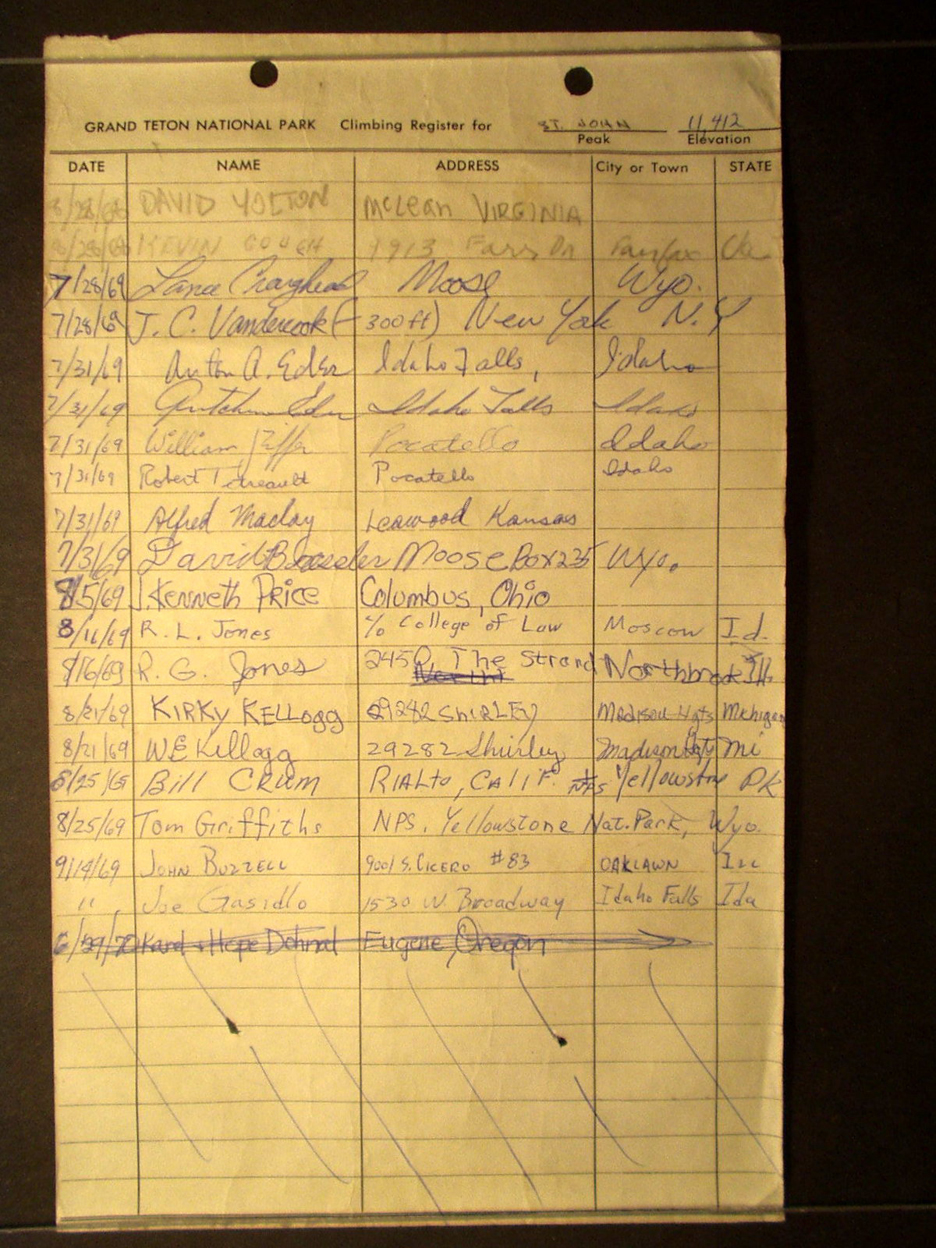 GRAND TETON NATIONAL PARK Climbing Register for ST. JOHN 11,412
Peak Elevation
DATE NAME ADDRESS City or Town STATE
8/28/68 DAVID YOLTON McLean VIRGINIA
8/28/68 KEVIN COUCH 1913 Farr Dr Fairfax Va
7/28/69 Lance Craighead Moose Wyo.
7/28/69 J. C. Vandercook (-300 ft) New York N.Y
7/31/69 Anton A. Eder Idaho Falls, Idaho
7/31/69 Eder Idaho Falls Idaho
7/31/69 William Pocatello Idaho
7/31/69 Robert Tetreault Pocatello Idaho
7/31/69 Alfred Maclay Leawood Kansas
7/31/69 David Moose Box 235 Wyo.
8/5/69 J. Kenneth Price Columbus, Ohio
8/16/69 R. L. Jones % College of Law Moscow Id.
8/16/69 R. G. Jones 2450 The Strand Northbrook Ill.
8/21/69 KIRKY KELLOgg 29282 SHIRLEY Madison Hgts Michigan
8/21/69 W E Kellogg 29282 Shirley Madison Hgts Mi
8/25/65 Bill CRUM RIALTO, CALIF. NPS Yellowstne PK
8/25/69 Tom Griffiths NPS, Yellowstone Nat. Park, Wyo.
9/14/69 JOHN BUZZELL 9001 S. CICERO #83 OAKLAWN ILL
" Joe Gasidlo 1530 W Broadway Idaho Falls Ida
6/29/70 Karel & Hope Dohnal Eugene, Oregon